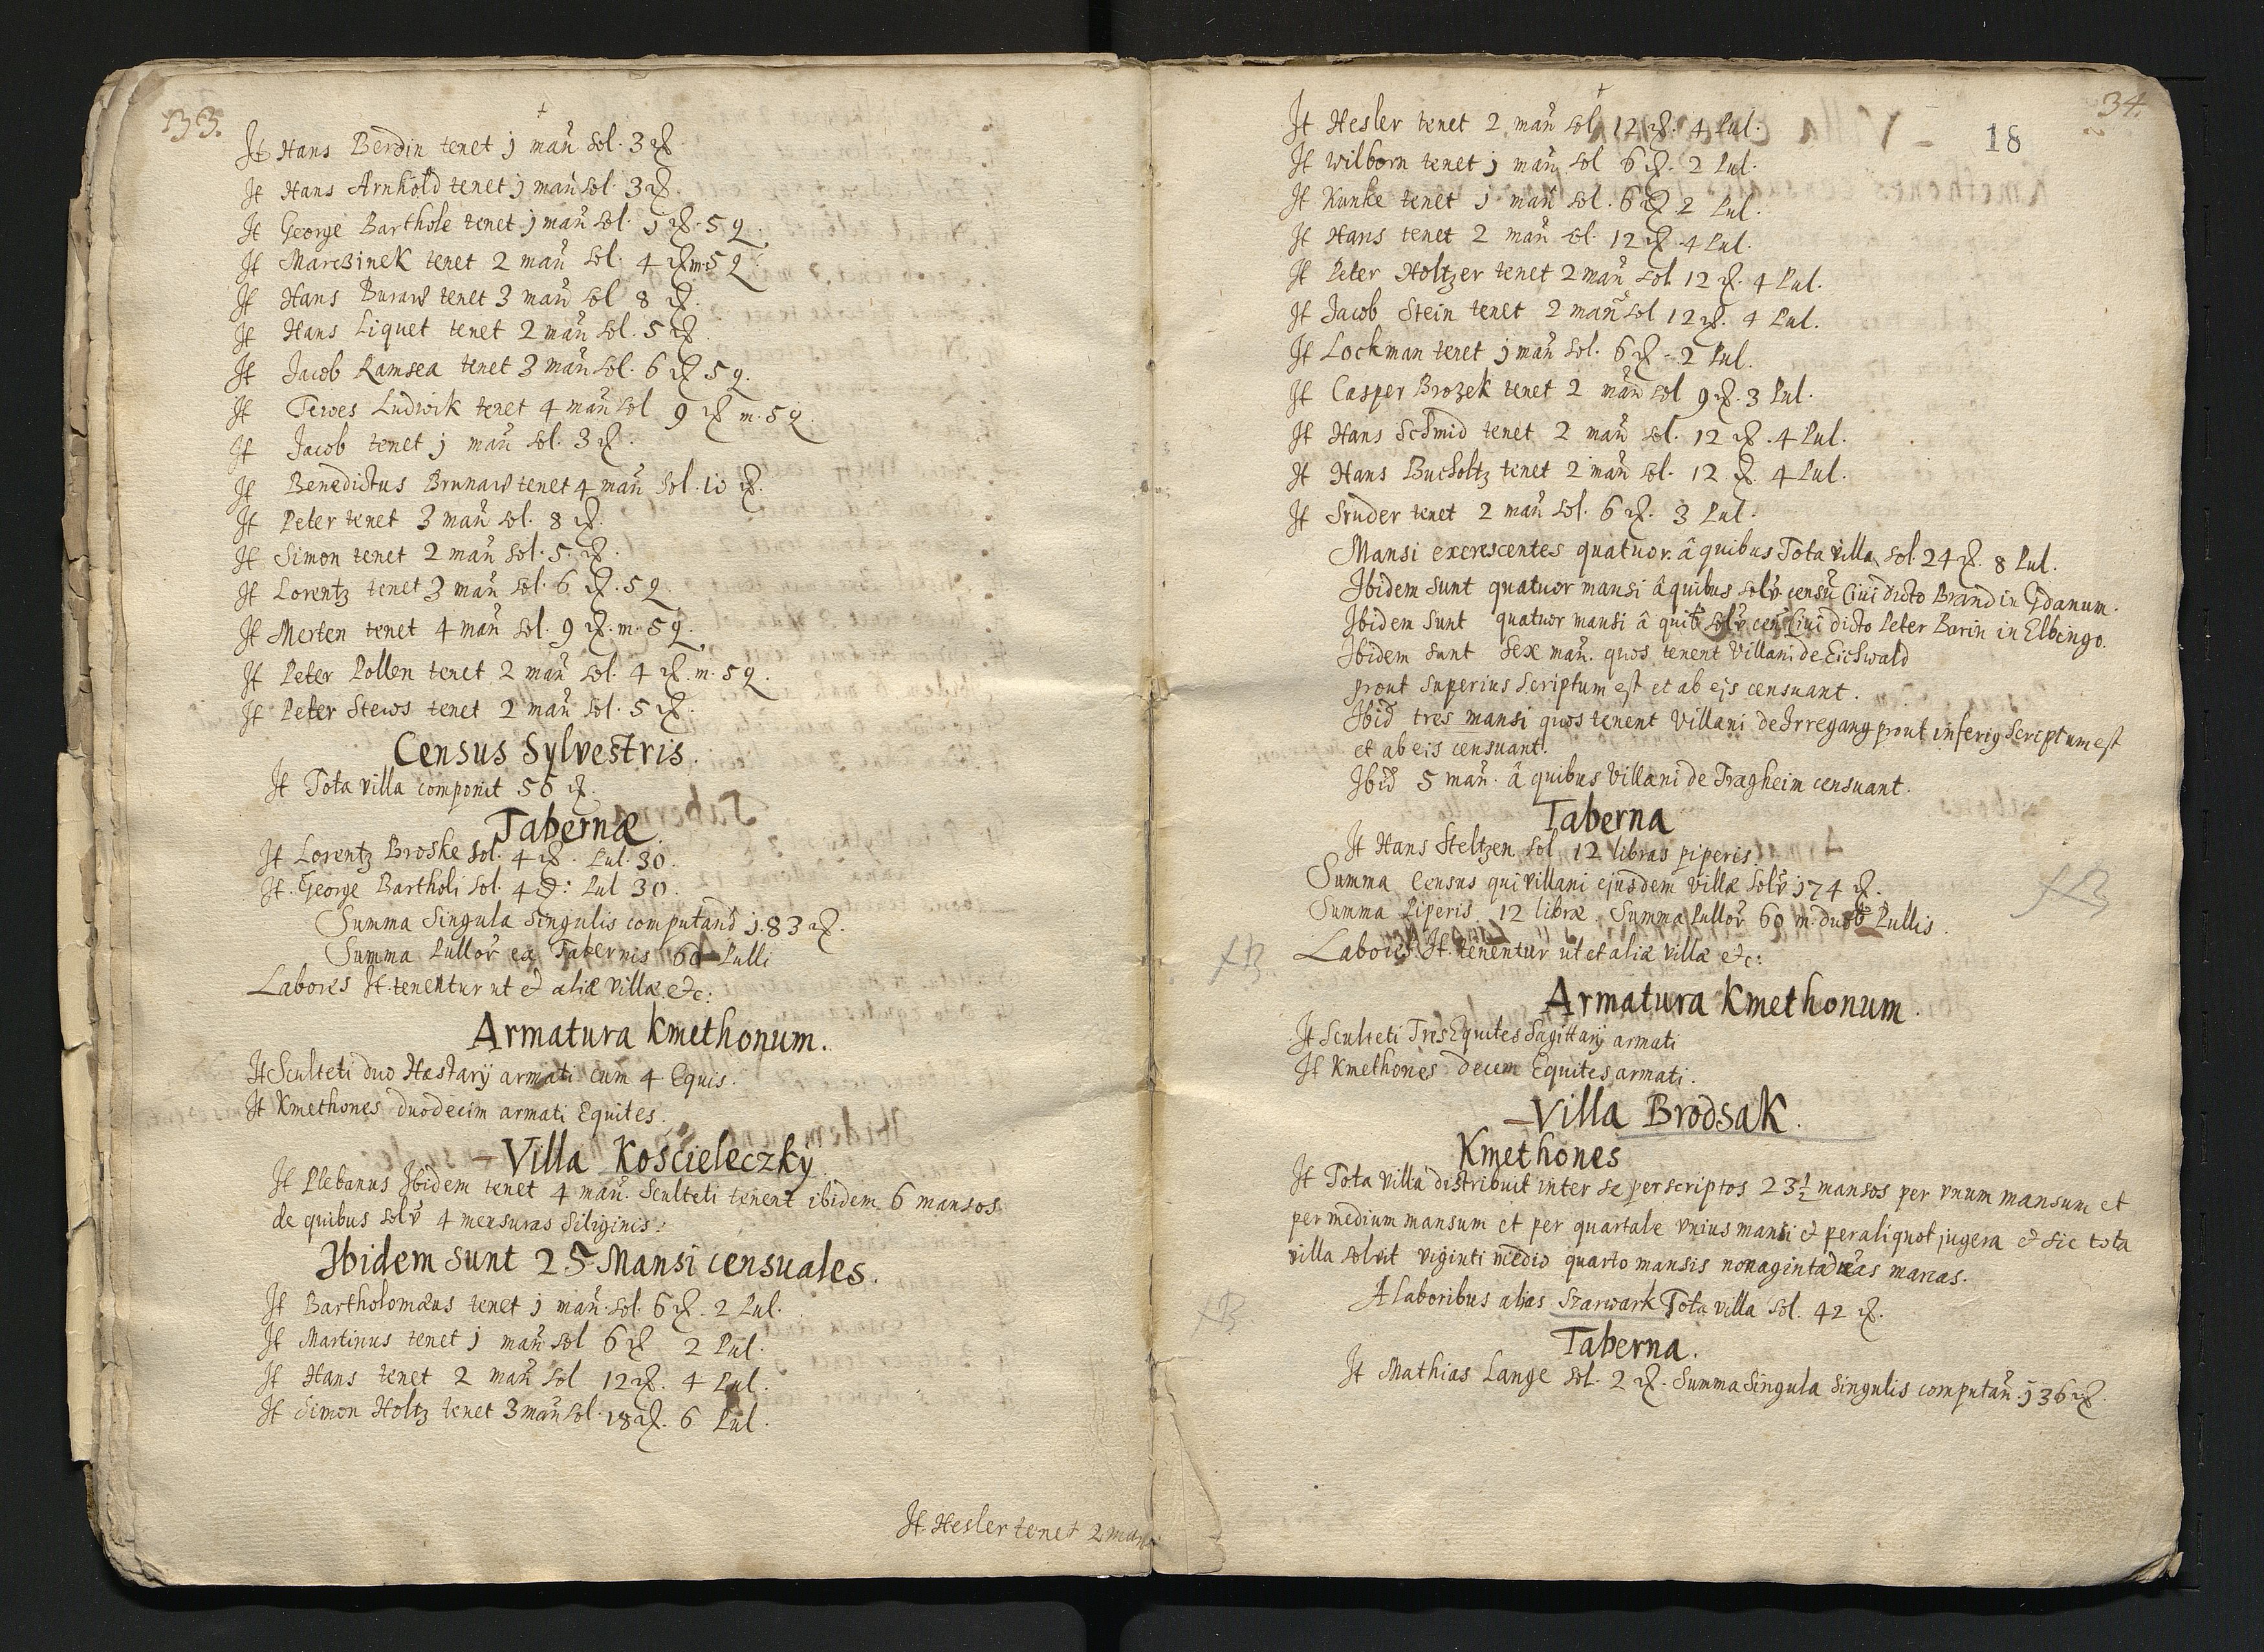 33.
It Hans Berdin tenet j mañ sol. 3 ℳ.
It Hans Arnhold tenet j mañ sol. 3 ℳ.
It George Barthole tenet j mañ sol. j ℳ. 5 q.
It Marczinek tenet 2 mañ sol. 4 ℳ m. 5 q.
It Hans Buraw tenet 3 mañ sol 8 ℳ.
It Hans Liquet tenet 2 mañ sol. 5 ℳ.
It Jacob Ramsea tenet 3 mañ sol. 6 ℳ 5 q.
It Tewes Ludwik tenet 4 mañ sol 9 ℳ m. 5 q.
It Jacob tenet j mañ sol. 3 ℳ.
It Benedictus Brunaw tenet 4 mañ sol. 10 ℳ.
It Peter tenet 3 mañ sol. 8 ℳ.
It Simon tenet 2 mañ sol. 5 ℳ.
It Lorentz tenet 3 mañ sol. 6 ℳ. 5 q.
It Merten tenet 4 mañ sol. 9 ℳ. m. 5 q.
It Peter Pollen tenet 2 mañ sol. 4 ℳ. m. 5 q.
It Peter Stews tenet 2 mañ sol. 5 ℳ.
Census Sylvestris.
It Tota villa componit 56 ℳ.
Tabernæ.
It Lorentz Broske sol. 4 ℳ. Pul. 30.
It. George Bartholi sol. 4 ℳ: Pul 30.
Summa Singula Singulis computand j.83 ℳ.
Summa Pullor ex Tabernis 60 Pulli
Labores It. tenentur ut et aliæ villæ. etc:
Armatura Kmethonum.
It Sculteti duo Hastarij armati cum 4 Equis.
It Kmethones duodecim armati Equites.
Villa Koscieleczky.
It Plebanus Ibidem tenet 4 mañ. Sculteti tenent ibidem 6 mansos
de quibus solv 4 mensuras Siliginis.
Ibidem sunt 25 Mansi censuales.
It Bartholomæus tenet j mañ. sol. 6 ℳ. 2 Pul.
It Martinus tenet j mañ sol 6 ℳ 2 Pul.
It Hans tenet 2 mañ sol 12 ℳ. 4 Pul.
It Simon Holtz tenet 3 mañ sol. 18 ℳ. 6 Pul.
It Hesler tenet 2 man
34.
18
It Hesler tenet 2 mañ sol 12 ℳ. 4 Pul.
It Wilborn tenet j mañ sol 6 ℳ. 2 Pul.
It Kunke tenet j mañ sol. 6 ℳ 2 Pul.
It Hans tenet 2 mañ sol. 12 ℳ 4 Pul.
It Peter Holtzer tenet 2 mañ sol 12 ℳ. 4 Pul.
It Jacob Stein tenet 2 mañ sol 12 ℳ. 4 Pul.
It Lockman tenet j mañ sol. 6 ℳ. 2 Pul.
It Casper Brozek tenet 2 mañ sol 9 ℳ. 3 Pul.
It Hans Schmid tenet 2 mañ sol. 12 ℳ. 4 Pul.
It Hans Bucholtz tenet 2 mañ sol. 12 ℳ. 4 Pul.
It Sruder tenet 2 mañ sol. 6 ℳ. 3 Pul.
Mansi excrescentes quatuor. â quibus Tota villa sol. 24 ℳ. 8 Pul.
Ibidem sunt quatuor mansi â quibus solv censũ Civi dicto Brand in Gdanum.
Ibidem sunt quatuor mansi â quib solv cen Civi dicto Peter Barin in Elbingo.
Ibidem sunt sex mañ. quos tenent Villani de Eichwald
prout superius scriptum est et ab ejs censuant.
Ibid tres mansi quos tenent Villani de Irregang prout inferi9 scriptum est
et ab eis censuant.
Ibid 5 mañ. â quibus Villani de Tragheim censuant.
Taberna
It Hans Steltzen sol 12 libras piperis.
Summa Census qui villani ejusdem villæ solv j74 ℳ.
Summa Piperis 12 libræ. Summa Pullor 60 m. duob Pullis.
Labores It. tenentur ut et aliæ villæ etc:
Armatura Kmethonum.
It Sculteti Tres Equites Sagittarij armati
It Kmethones decem Equites armati.
Villa Brodsak.
Kmethones
It Tota villa distribuit inter se perscriptos 23½ mansos per vnum mansum et
per medium mansum et per quartale vnius mansi et per aliquot jugera et sic tota
villa solvit viginti medio quarto mansis nonaginta duas marcas.
A laboribus alias Szarwark Tota villa sol. 42 ℳ.
Taberna.
It Mathias Lange sol. 2 ℳ. Summa Singula Singulis computañ. j36 ℳ.